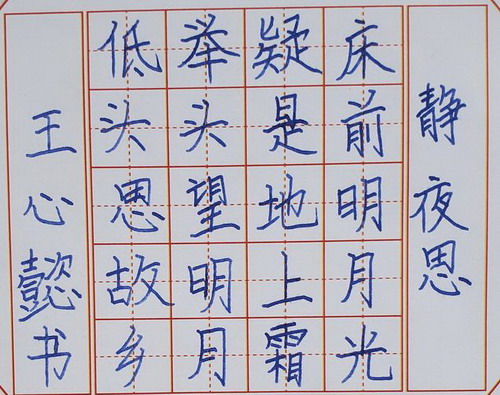 静夜思
床前明月光
疑是地上霜
举头望明月
低头思故乡
王心懿书